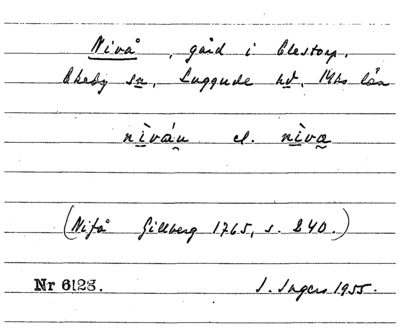 Nivå, gård i Elestorp,
Ekeby sn, Luggude hd, Mhs län
nìván el. nìva
(Nifå Gillberg 1765, s. 240.)
Nr 6128. I. Ingers 1955.